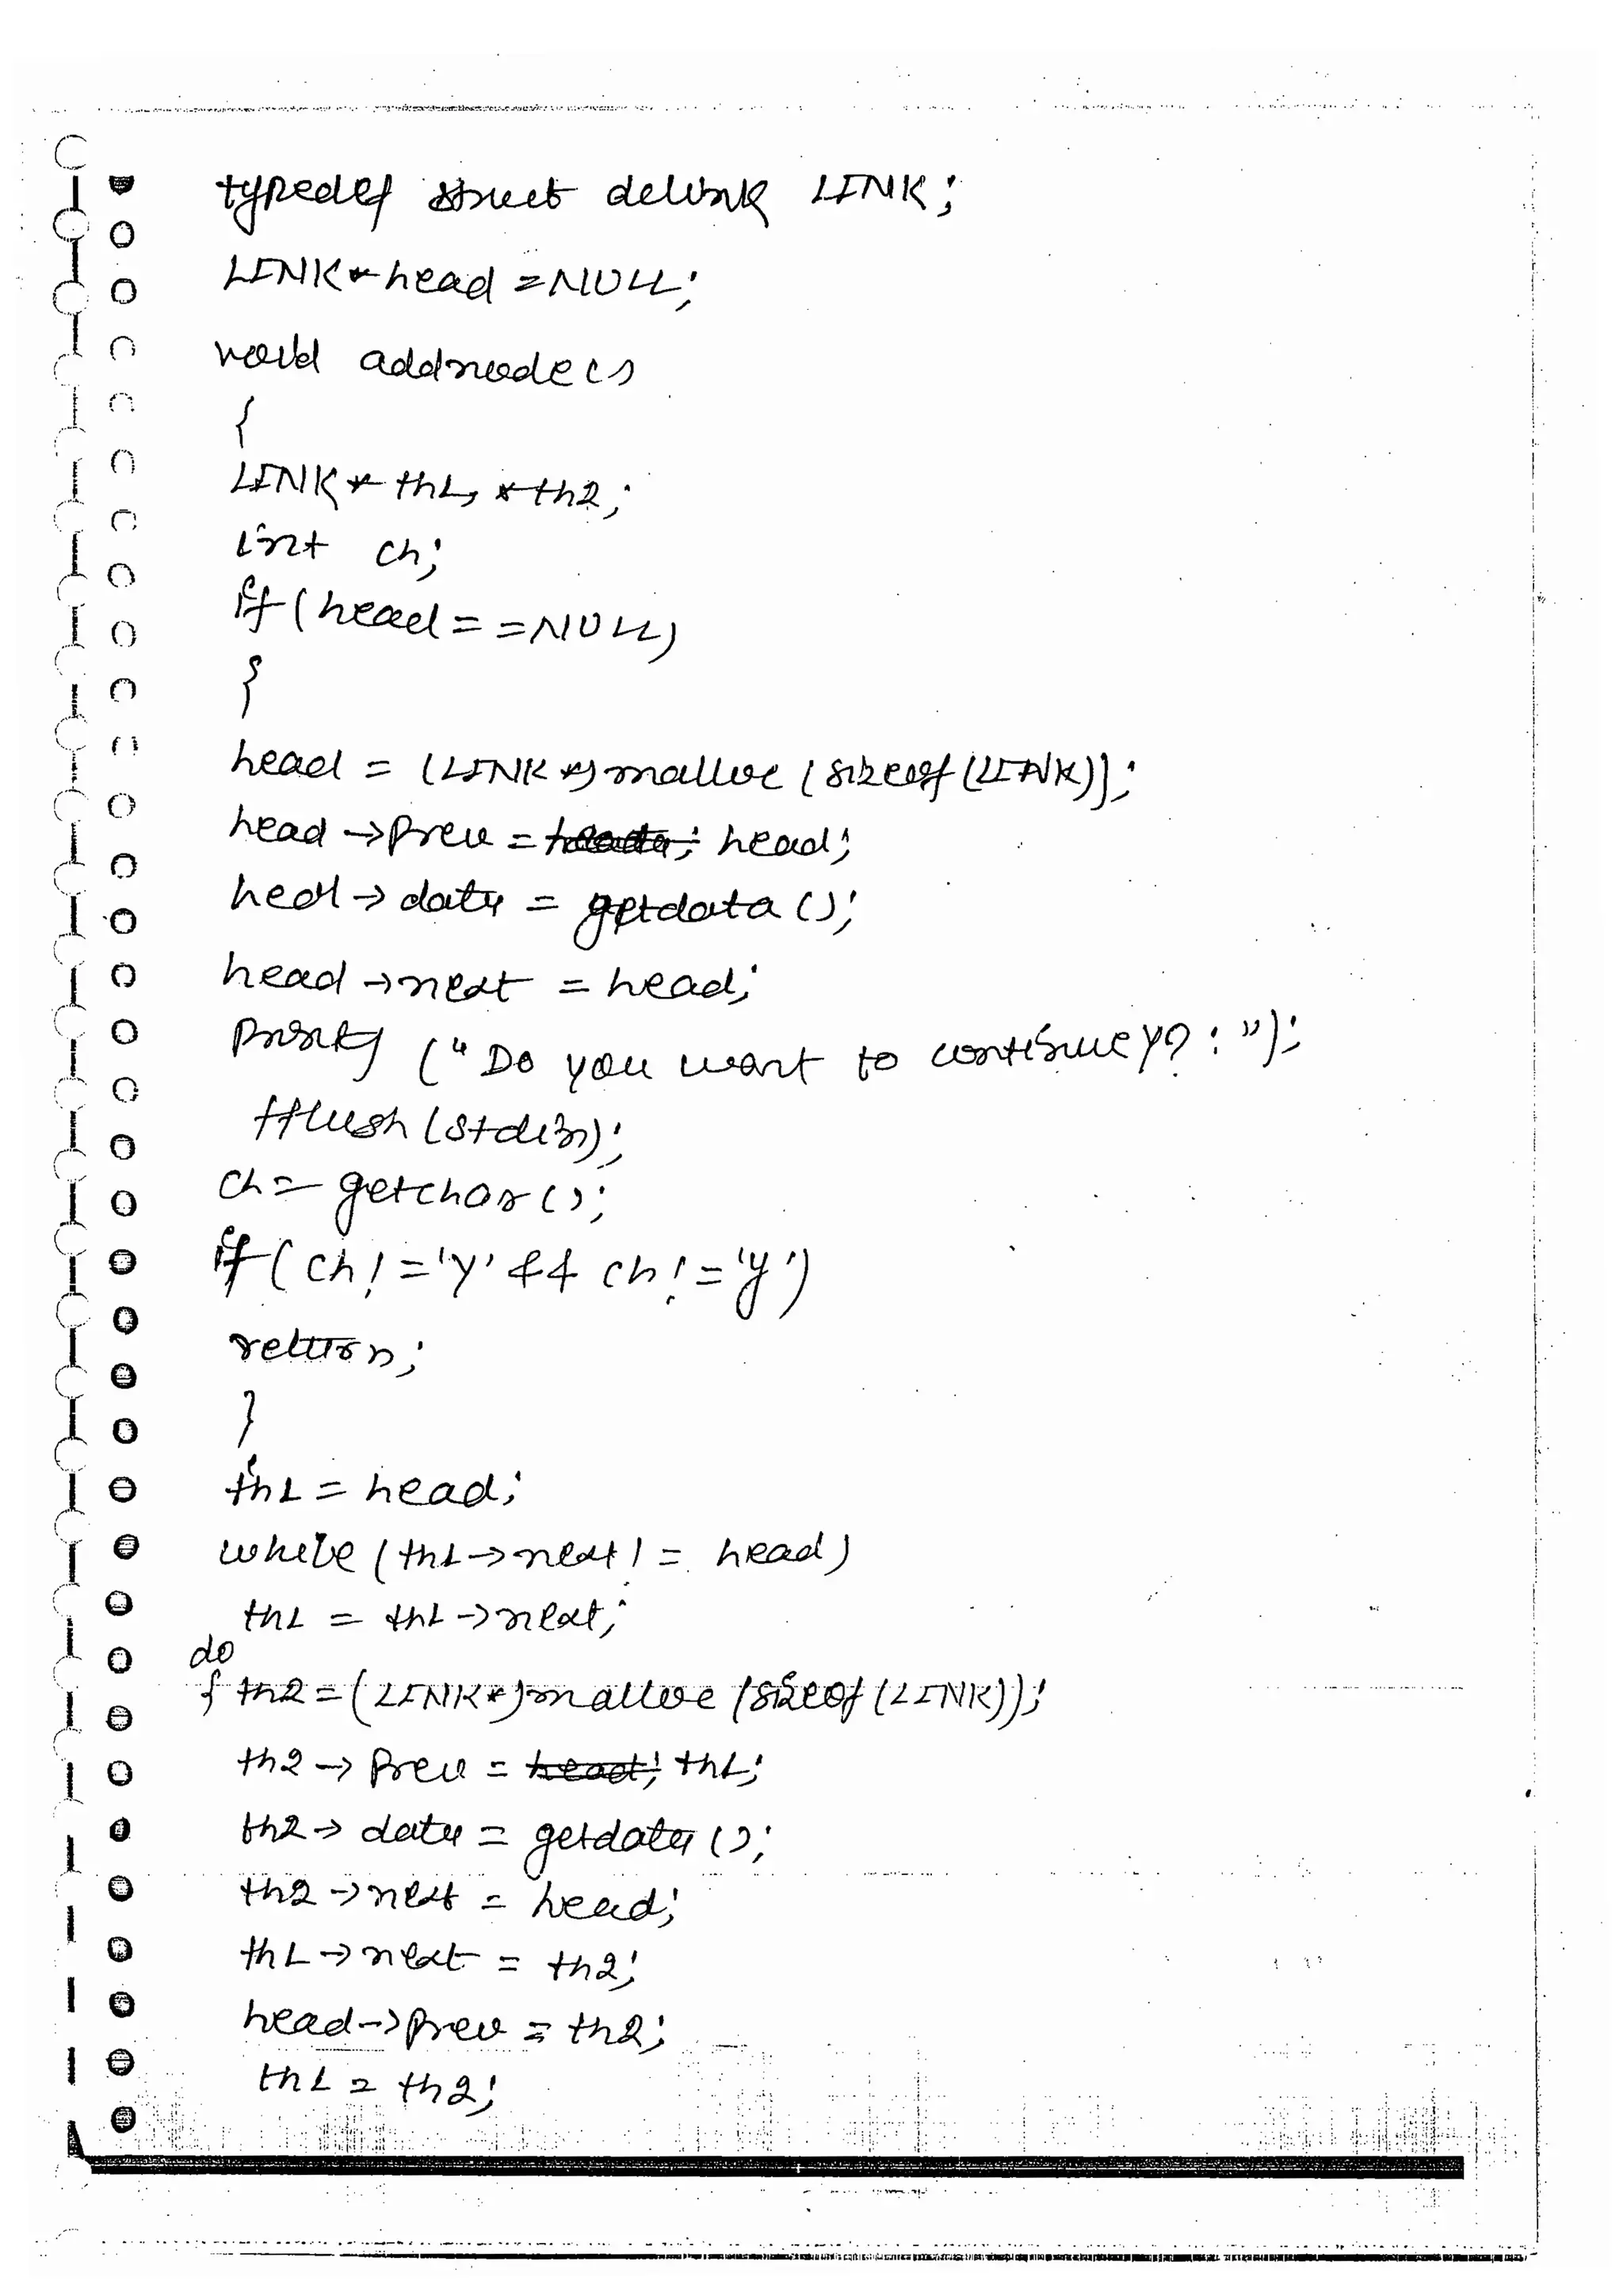 typedef struct delink LINK;
LINK* head = NULL;
void addnode()
{
LINK * th1, *th2;
int ch;
if(head==NULL)
{
head = (LINK *)malloc(sizeof(LINK));
head->prev = head;
head->data = getdata();
head->next = head;
printf("Do you want to continue y?:");
fflush(stdin);
ch=getchar();
if(ch!='Y' && ch!='y')
return;
}
th1 = head;
while(th1->next != head)
th1 = th1->next;
do
{ th2=(LINK*)malloc(sizeof(LINK));
th2->prev = th1;
th2->data = getdata();
th2->next = head;
th1->next = th2;
head->prev = th2;
th1 = th2;